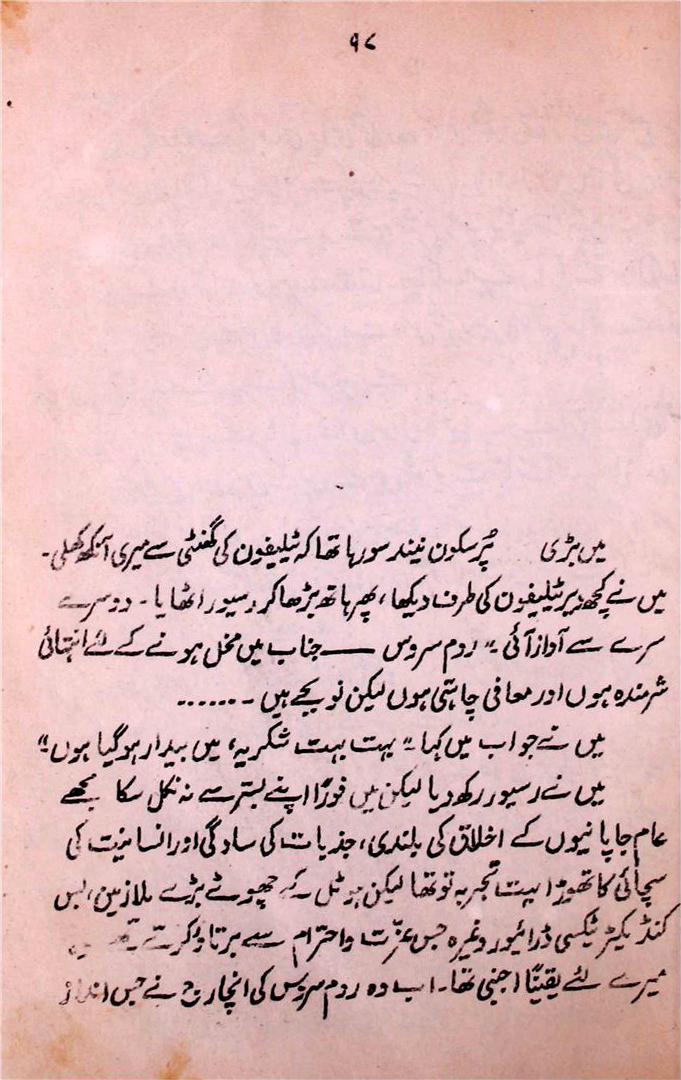 ۹۸
میں بڑی پُرسکون نیند سو رہا تھا کہ ٹیلیفون کی گھنٹی سے میری آنکھ کھلی۔
میں نے کچھ دیر ٹیلیفون کی طرف دیکھا، پھر ہاتھ بڑھا کر رسیور اٹھایا۔ دوسرے
سرے سے آواز آئی۔" روم سروس ــــ جناب میں مخل ہونے کے لئے انتہائی
شرمندہ ہوں اور معافی چاہتی ہوں لیکن نو بجے ہیں ۔......
میں نے جواب میں کہا " بہت بہت شکریہ، میں بیدار ہو گیا ہوں"
میں نے رسیور رکھ دیا لیکن میں فوراً اپنے بستر سے نہ نکل سکا مجھے
عام جاپانیوں کے اخلاق کی بلندی، جذبات کی سادگی اور انسانیت کی
سچائی کا تھوڑا بہت تجربہ تو تھا لیکن ہوٹل کے چھوٹے بڑے ملازمین، بس
کنڈیکٹر ٹیکسی ڈرائیور وغیرہ جس عزّت و احترام سے برتاؤ کرتے
میرے لئے یقیناً اجنبی تھا۔ اب وہ روم سروس کی انچارج نے جس انداز